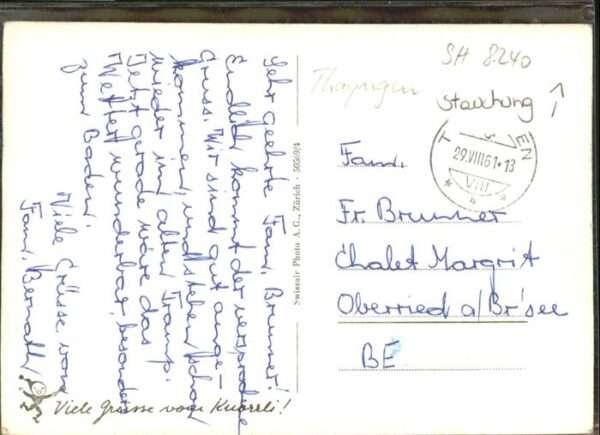 Sehr geehrte Fam. Brunner!
Endlich kommt der versprochene
Gruss. Wir sind gut ange-
kommen und stehen schon
wieder im alten Tramp.
Jetzt gerade wäre das
Wetter wunderbar, besonders
zum Baden.
Viele Grüsse von
Fam. Bernath
Viele Grüsse vom Knörrli!
Swissair Photo A.G., Zürich
SH 8240
Thayngen
Stauchung
29.VIII61-13
VIII
Fam.
Fr. Brunner
Chalet Margrit
Oberried a/Br'see
BE